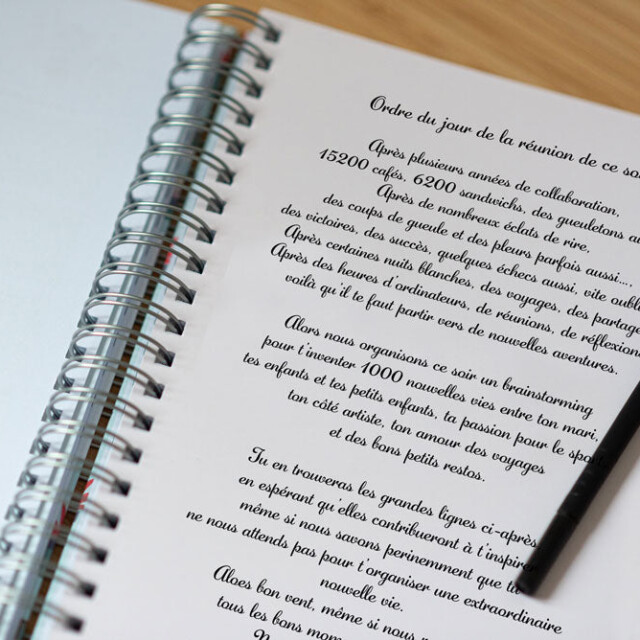 Ordre du jour de la réunion de ce
Après plusieurs années de collaboration,
15200 cafés, 6200 sandwichs, des gueuletons
Après de nombreux éclats de rire,
des coups de gueule et des pleurs parfois aussi....,
des victoires, des succès, quelques échecs aussi, vite
Après certaines nuits blanches, des voyages, des
Après des heures d'ordinateurs, de réunions, de
voilà qu'il te faut partir vers de nouvelles aventures.
Alors nous organisons ce soir un brainstorming
pour t'inventer 1000 nouvelles vies entre ton mari,
tes enfants et tes petits enfants, ta passion pour le
ton côté artiste, ton amour des voyages
et des bons petits restos.
Tu en trouveras les grandes lignes ci-après
en espérant qu'elles contribueront à t'inspirer
même si nous savons perinemment que tu
ne nous attends pas pour t'organiser une extraordinaire
nouvelle vie.
Aloes bon vent, même si nous
tous les bons